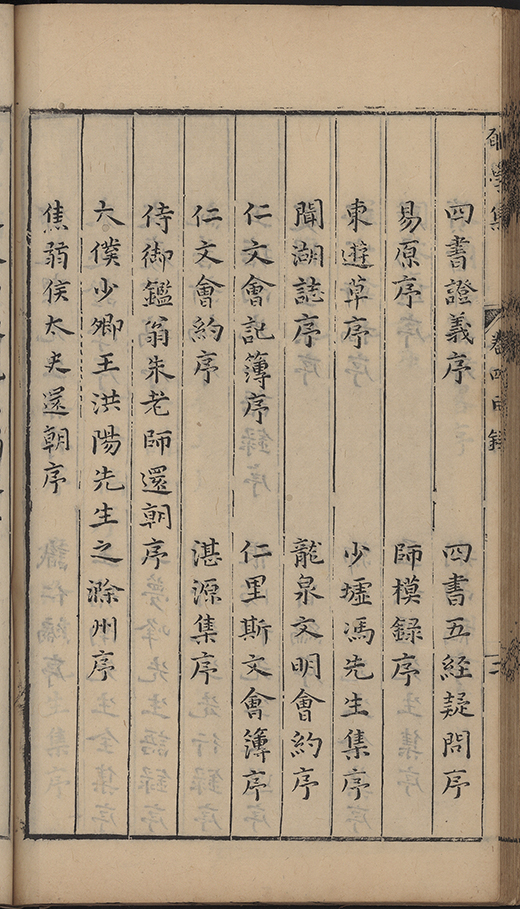 四書證義序 四書五經疑問序
易原序 師模録序
東遊草序 少墟馮先生集序
聞湖誌序 龍泉文明會約序
仁文會記簿序 仁里斯文會簿序
仁文會約序 湛源集序
侍御鑑翁朱老師還朝序
大僕少卿王洪陽先生之滁州序
焦弱侯太史還朝序
學集 卷四目録